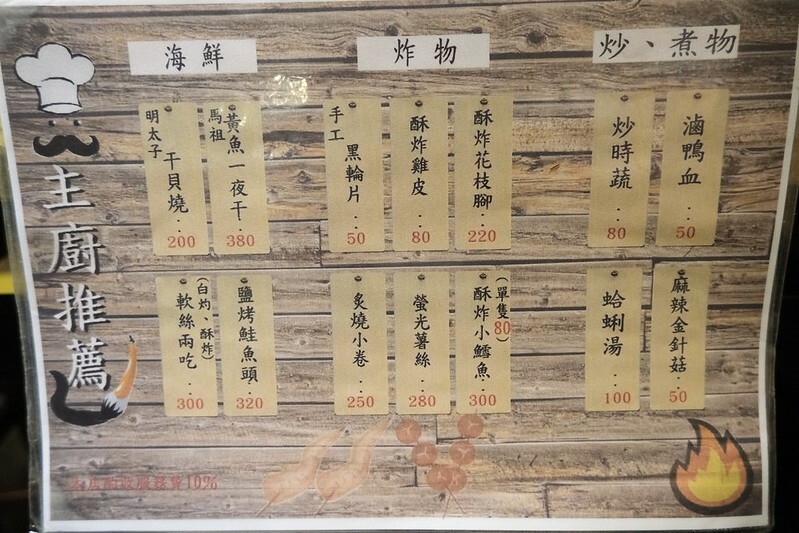 主廚推薦
海鮮
馬祖
黃魚一夜干...380
明太子
干貝燒...200
鹽烤鮭魚頭...320
軟絲兩吃...300
(白灼、酥炸)
炸物
酥炸花枝腳...220
酥炸雞皮...80
手工
黑輪片...50
酥炸小鱈魚...300
(單隻80)
螢光薯絲...280
炙燒小卷...250
炒、煮物
滷鴨血...50
炒時蔬...80
麻辣金針菇...50
蛤蜊湯...100
本店酌收服務費10%